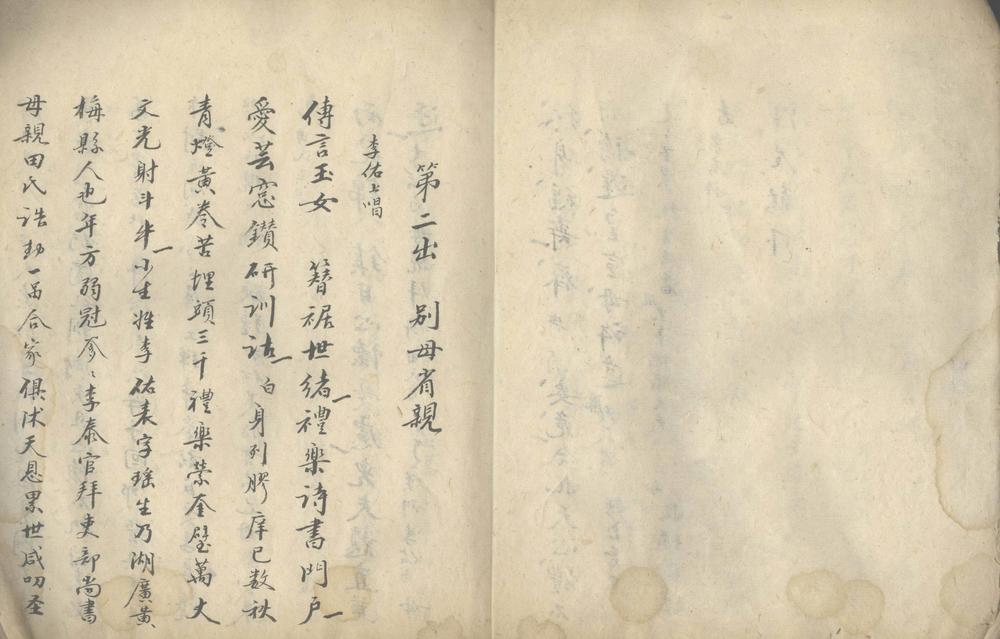 第二出　別母省親
李佑上唱
傳言玉女　簪裾世緒禮樂詩書門戶
愛芸窓鑽研訓詁白身列膠庠已数秋
青燈黃卷苦埋頭三千禮樂縈奎壁萬丈
文光射斗牛小生姓李佑表字瑤生乃湖廣黃
梅縣人也年方弱冠爹〻李泰官拜吏部尚書
母親田氏誥勅一品合家俱沐天恩累世咸叨圣